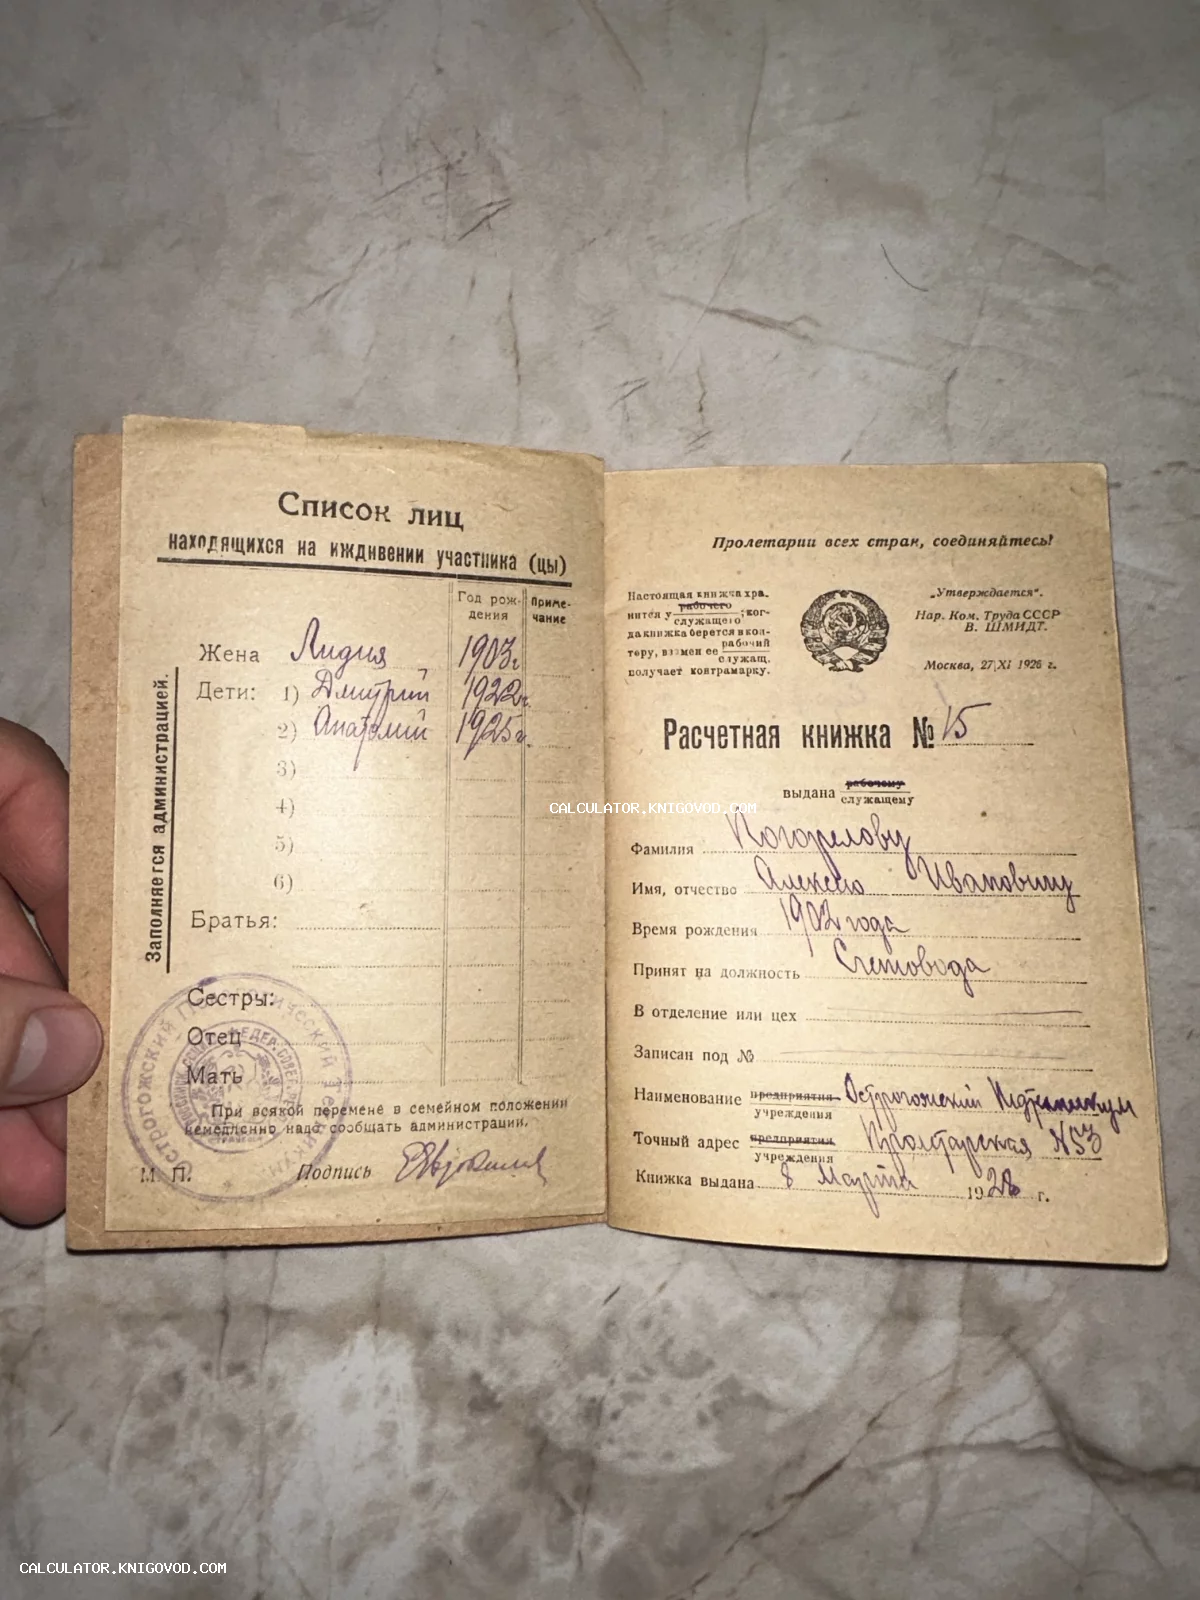 Список лиц
находящихся на иждивении участника (цы)
Год рож-
дения
Приме-
чание
Заполняется администрацией.
Жена Лидия 1903г
Дети: 1) Дмитрий 1922г.
2) Анатолий 1925г.
3)
4)
5)
6)
Братья:
Сестры:
Отец
Мать
При всякой перемене в семейном положении
немедленно надо сообщать администрации.
М. П. Подпись
Пролетарии всех стран, соединяйтесь!
Настоящая книжка хра-
нится у рабочего служащего ; ког-
да книжка берется в кон-
тору, взамен ее рабочий служащ.
получает контрамарку.
„Утверждается“.
Нар. Ком. Труда СССР
В. ШМИДТ.
Москва, 27/XI 1926 г.
Расчетная книжка № 15
выдана рабочему
служащему
Фамилия Погорелову
Имя, отчество Алексею Ивановичу
Время рождения 1902 года
Принят на должность Счетовода
В отделение или цех
Записан под №
Наименование предприятия учреждения Острогожский Педтехникум
Точный адрес предприятия учреждения Пролетарская №53
Книжка выдана 8 Марта 1928 г.
CALCULATOR.KNIGOVOD.COM
CALCULATOR.KNIGOVOD.COM